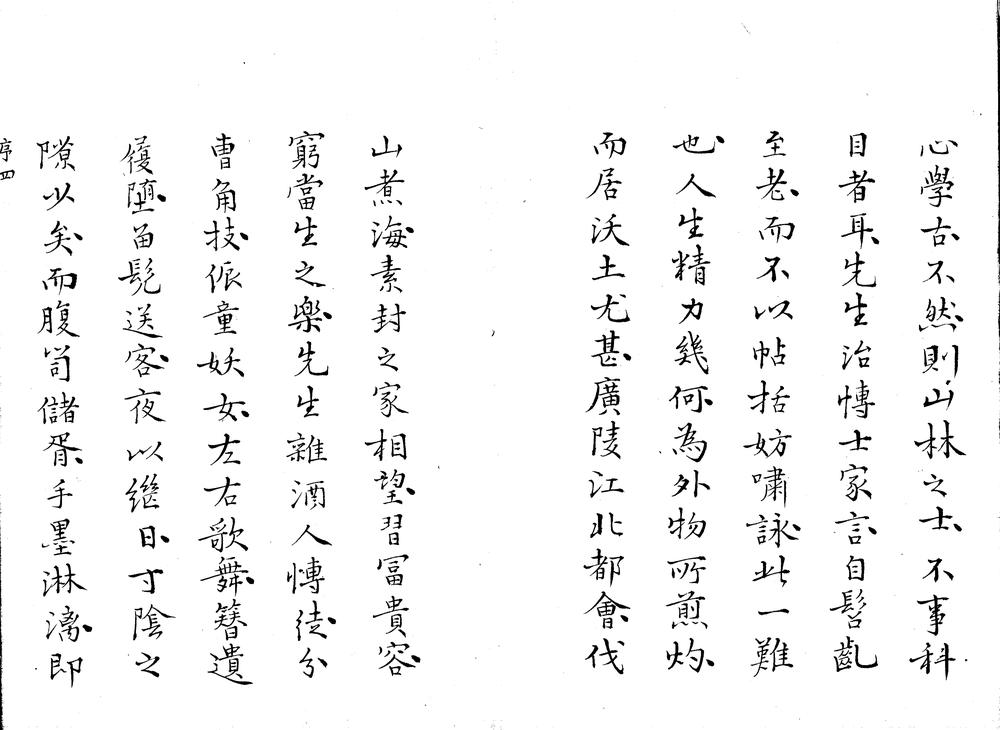 心學古不然則山林之士不事科
目者耳先生治愽士家言自髫齓
至老而不以帖括妨嘯詠此一難
也人生精力幾何為外物所煎灼
而居沃土尤甚廣陵江北都會伐
山煮海素封之家相望習冨貴容
窮當生之樂先生雜酒人愽徒分
曹角技侲童妖女左右歌舞簪遺
履墮留髡送客夜以継日寸陰之
隙以矣而腹笥儲胥手墨淋漓即
序四